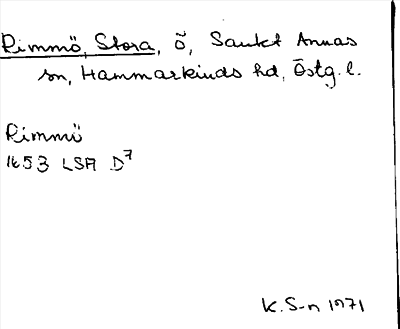 Rimmö, Stora, ö, Sankt Annas
sn, Hammarkinds hd, Östg. l.
Rimmö
1653 LSA D7
K. S-n 1971